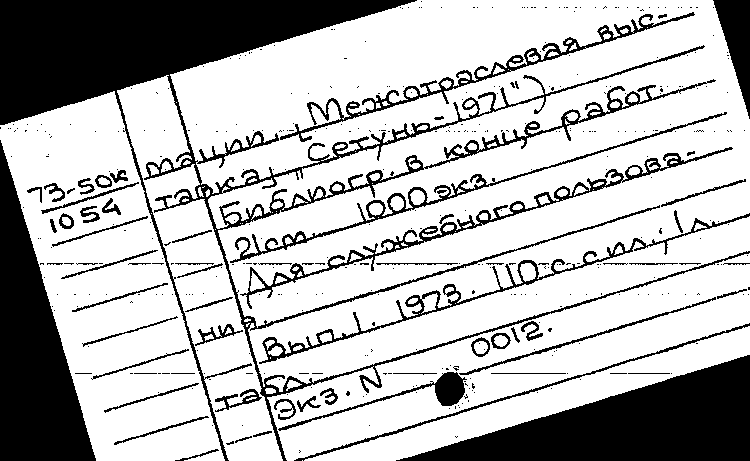 73-50к
1054
мации. [Межотраслевая выс-
тавка] „Сетунь-1971").
Библиогр. в конце работ.
21см. 1000 экз.
Для служебного пользова-
ния.
Вып.1. 1973. 110 с. с ил.; 1л.
табл.
Экз. N 0012.